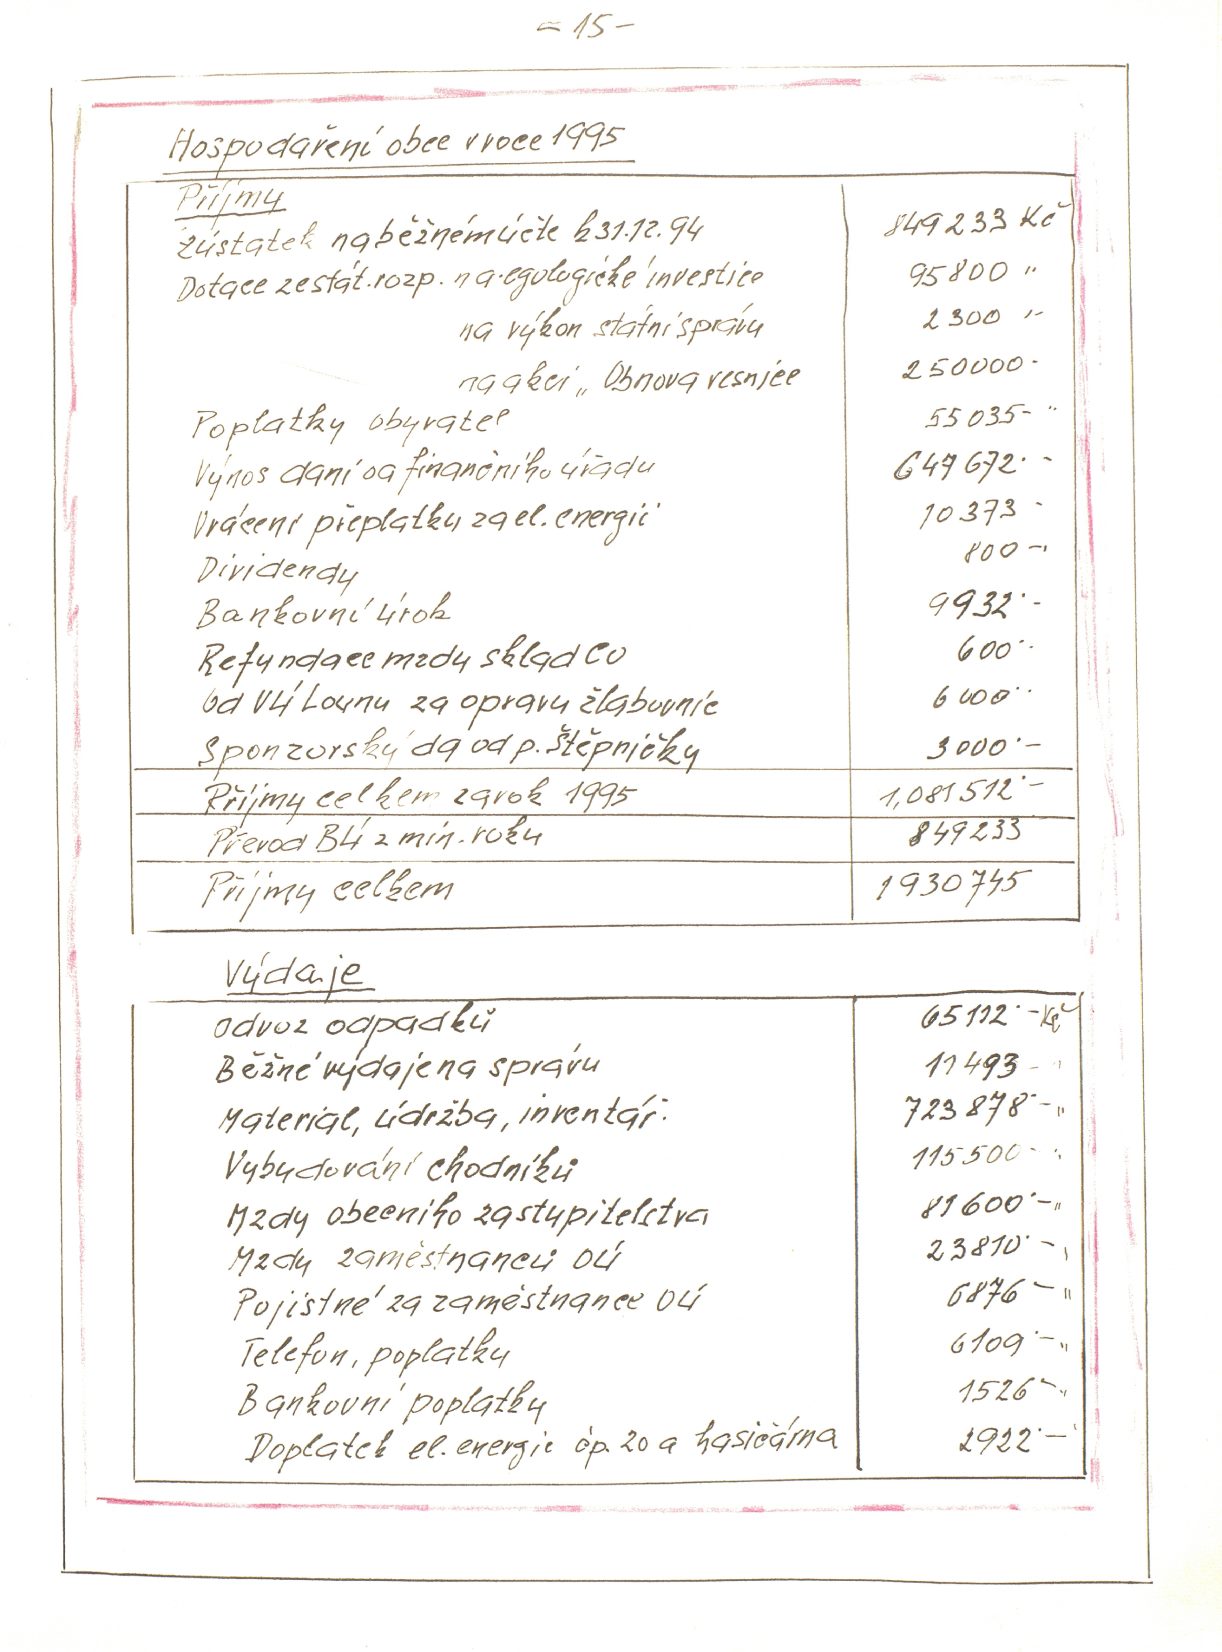 - 15 -
Hospodaření obce v roce 1995
Příjmy
Zůstatek na běžném účte k 31.12.94 849233 Kč
Dotace ze stát. rozp. na egologické investice 95800 "
na výkon státní správy 2300 "
na akci „Obnova vesnice 250000-
Poplatky obyvatel 55035- "
Výnos daní od finančního úřadu 647672·-
Vrácení přeplatku za el. energii 10373 -
Dividendy 800 -"
Bankovní úrok 9932·-
Refundace mzdy sklad CO 600·-
Od VÚ Louny za opravu žlabovnic 6000"
Sponzorský da od p. Štěpničky 3000·-
Příjmy celkem za rok 1995 1,081512·-
Převod BÚ z min. roku 849233
Příjmy celkem 1930745
Výdaje
Odvoz odpadků 65112·- Kč
Běžné výdaje na správu 11493 - "
Material, údržba, inventář. 723878·-"
Vybudování chodníků 115500·- "
Mzdy obecního zastupitelstva 81600·-"
Mzdy zaměstnanců OÚ 23810·-"
Pojistné za zaměstnance OÚ 6876 -"
Telefon, poplatky 6109·-"
Bankovní poplatky 1526·-"
Doplatek el. energie čp. 20 a hasičárna 2922·-"